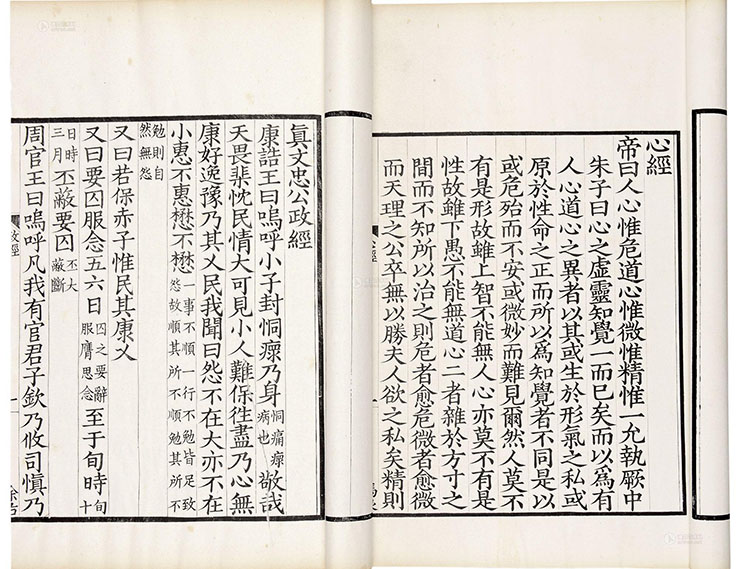 心經
帝曰人心惟危道心惟微惟精惟一允執厥中
朱子曰心之虛靈知覺一而已矣而以爲有
人心道心之異者以其或生於形氣之私或
原於性命之正而所以爲知覺者不同是以
或危殆而不安或微妙而難見爾然人莫不
有是形故雖上智不能無人心亦莫不有是
性故雖下愚不能無道心二者雜於方寸之
間而不知所以治之則危者愈危微者愈微
而天理之公卒無以勝夫人欲之私矣精則
心經
一
眞文忠公政經
康誥王曰嗚呼小子封恫瘝乃身恫痛瘝病也敬哉
天畏棐忱民情大可見小人難保徃盡乃心無
康好逸豫乃其乂民我聞曰怨不在大亦不在
小惠不惠懋不懋一事不順一行不勉皆足致怨故順其所不順勉其所不
勉則自然無怨
又曰若保赤子惟民其康乂
又曰要囚服念五六日囚之要辭服膺思念至于旬時旬十
日時三月丕蔽要囚丕大蔽斷
周官王曰嗚呼凡我有官君子欽乃攸司愼乃
政經
一